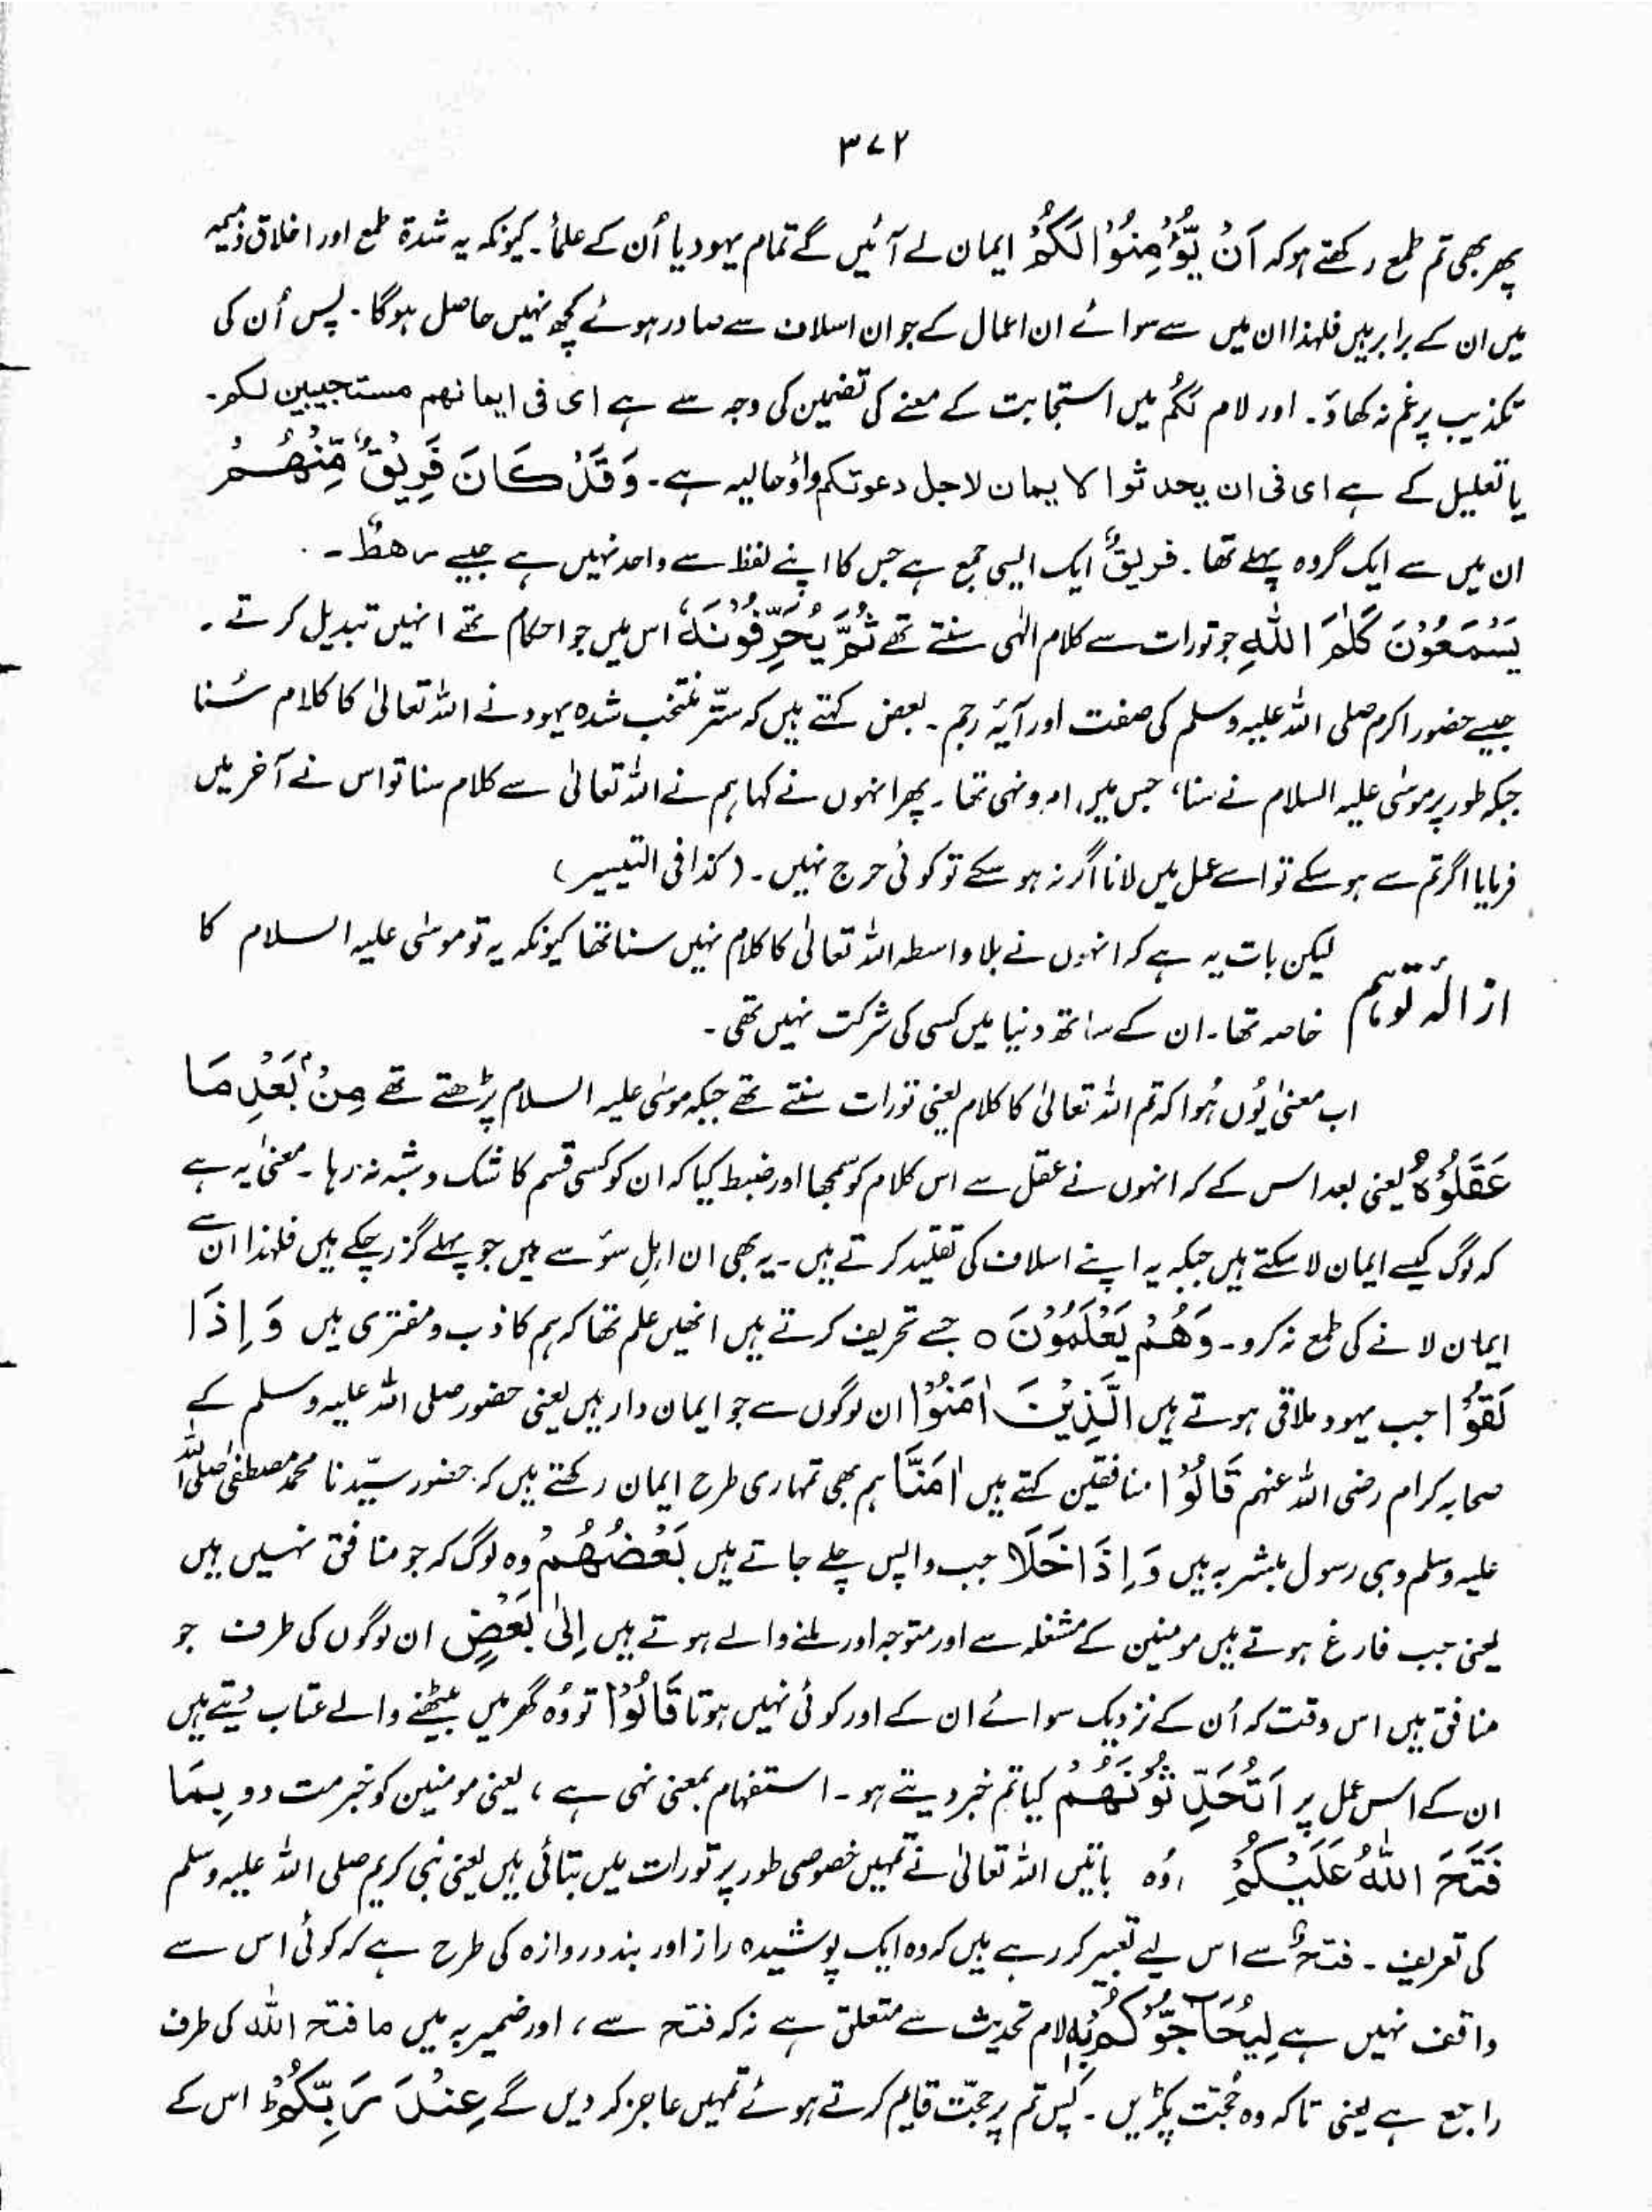 ۳۷۲
پھر بھی تم طمع رکھتے ہو کہ اَنْ یُّؤْمِنُوْا لَکُمْ ایمان لے آئیں گے تمام یہود یا اُن کے علماً۔ کیونکہ یہ شدۃ طمع اور اخلاق ذمیمہ
میں ان کے برابر ہیں فلہذا ان میں سے سوائے ان اعمال کے جو ان اسلاف سے صادر ہوئے کچھ نہیں حاصل ہوگا۔ پس اُن کی
تکذیب پر غم نہ کھاؤ۔ اور لام لَکُمْ میں استجابت کے معنے کی تضمین کی وجہ سے ہے ای فی ایمانھم مستجیبین لکم۔
یا تعلیل کے ہے ای فی ان یحدثوا الایمان لاجل دعوتکم واؤ حالیہ ہے۔ وَقَدْ کَانَ فَرِیْقٌ مِّنْھُمْ
ان میں سے ایک گروہ پہلے تھا۔ فریقٌ ایک ایسی جمع ہے جس کا اپنے لفظ سے واحد نہیں ہے جیسے رھطٌ۔
یَسْمَعُوْنَ کَلٰمَ اللّٰہِ جو تورات سے کلام الٰہی سنتے تھے ثُمَّ یُحَرِّفُوْنَہٗ اس میں جو احکام تھے انہیں تبدیل کرتے۔
جیسے حضور اکرم صلی اللہ علیہ وسلم کی صفت اور آیۂ رجم۔ بعض کہتے ہیں کہ ستّر منتخب شدہ یہود نے اللہ تعالیٰ کا کلام سُنا
جبکہ طور پر موسٰی علیہ السلام نے سنا، جس میں امر و نہی تھا۔ پھر انہوں نے کہا ہم نے اللہ تعالیٰ سے کلام سنا تو اس نے آخر میں
فرمایا اگر تم سے ہو سکے تو اسے عمل میں لانا اگر نہ ہو سکے تو کوئی حرج نہیں۔ (کذا فی التیسیر)
لیکن بات یہ ہے کہ انہوں نے بلا واسطہ اللہ تعالیٰ کا کلام نہیں سنا تھا کیونکہ یہ تو موسٰی علیہ السلام کا
ازالۂ توہّم خاصہ تھا۔ ان کے ساتھ دنیا میں کسی کی شرکت نہیں تھی۔
اب معنیٰ یُوں ہُوا کہ تم اللہ تعالیٰ کا کلام یعنی تورات سنتے تھے جبکہ موسٰی علیہ السلام پڑھتے تھے مِنْۢ بَعْدِ مَا
عَقَلُوْہُ یعنی بعد اس کے کہ انہوں نے عقل سے اس کلام کو سمجھا اور ضبط کیا کہ ان کو کسی قسم کا شک و شبہ نہ رہا۔ معنیٰ یہ ہے
کہ لوگ کیسے ایمان لا سکتے ہیں جبکہ یہ اپنے اسلاف کی تقلید کرتے ہیں۔ یہ بھی ان اہلِ سوٗ سے ہیں جو پہلے گزر چکے ہیں فلہذا ان سے
ایمان لانے کی طمع نہ کرو۔ وَھُمْ یَعْلَمُوْنَ ہ جسے تحریف کرتے ہیں انھیں علم تھا کہ ہم کاذب و مفتری ہیں وَاِذَا
لَقُوْا جب یہود ملاقی ہوتے ہیں الَّذِیْنَ اٰمَنُوْا ان لوگوں سے جو ایمان دار ہیں یعنی حضور صلی اللہ علیہ وسلم کے
صحابہ کرام رضی اللہ عنہم قَالُوْا منافقین کہتے ہیں اٰمَنَّا ہم بھی تمہاری طرح ایمان رکھتے ہیں کہ حضور سیّدنا محمد مصطفیٰ صلی اللہ
علیہ وسلم وہی رسول مبشر بہ ہیں وَاِذَا خَلَا جب واپس چلے جاتے ہیں بَعْضُھُمْ وہ لوگ کہ جو منافق نہیں ہیں
یعنی جب فارغ ہوتے ہیں مومنین کے مشغلہ سے اور متوجہ اور ملنے والے ہوتے ہیں اِلٰی بَعْضٍ ان لوگوں کی طرف جو
منافق ہیں اس وقت کہ اُن کے نزدیک سوائے ان کے اور کوئی نہیں ہوتا قَالُوْٓا تو وُہ گھر میں بیٹھنے والے عتاب دیتے ہیں
ان کے اس عمل پر اَتُحَدِّثُوْنَھُمْ کیا تم خبر دیتے ہو۔ استفہام بمعنی نہی ہے، یعنی مومنین کو خبر مت دو بِمَا
فَتَحَ اللّٰہُ عَلَیْکُمْ وُہ باتیں اللہ تعالیٰ نے تمہیں خصوصی طور پر تورات میں بتائی ہیں یعنی نبی کریم صلی اللہ علیہ وسلم
کی تعریف۔ فتحٌ سے اس لیے تعبیر کر رہے ہیں کہ وہ ایک پوشیدہ راز اور بند دروازہ کی طرح ہے کہ کوئی اس سے
واقف نہیں ہے لِیُحَآجُّوْکُمْ بِہٖ لام تحدیث سے متعلق ہے نہ کہ فتح سے، اور ضمیر بہ میں ما فتح اللّٰہ کی طرف
راجع ہے یعنی تاکہ وہ حُجّت پکڑیں۔ پس تم پر حجّت قایم کرتے ہوئے تمہیں عاجز کر دیں گے عِنْدَ رَبِّکُمْ ط اس کے